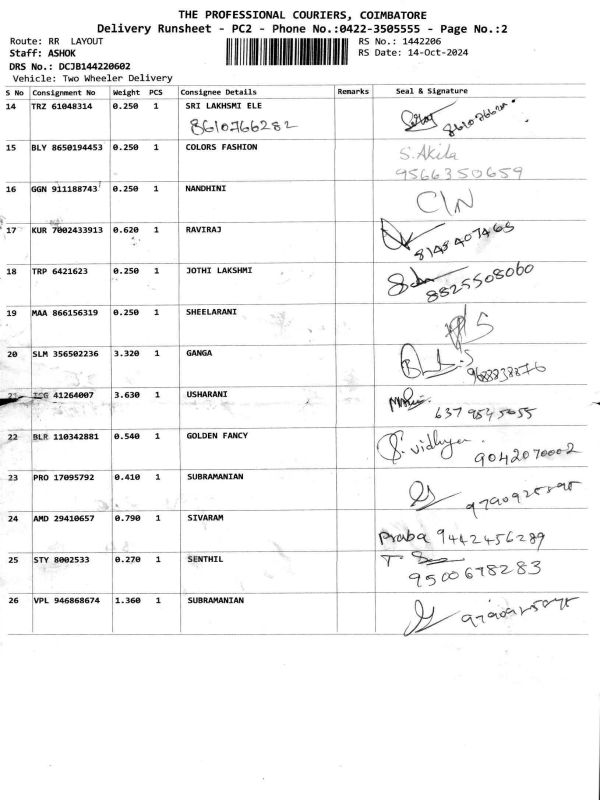 THE PROFESSIONAL COURIERS, COIMBATORE
Delivery Runsheet - PC2 - Phone No.:0422-3505555 - Page No.:2
Route: RR LAYOUT RS No.: 1442206
Staff: ASHOK RS Date: 14-Oct-2024
DRS No.: DCJB144220602
Vehicle: Two Wheeler Delivery
S No Consignment No Weight PCS Consignee Details Remarks Seal & Signature
14 TRZ 61048314 0.250 1 SRI LAKHSMI ELE
8610766282
15 BLY 8650194453 0.250 1 COLORS FASHION S. Akila
9566350659
16 GGN 911188743 0.250 1 NANDHINI C/N
17 KUR 7002433913 0.620 1 RAVIRAJ 8148407465
18 TRP 6421623 0.250 1 JOTHI LAKSHMI 8825508060
19 MAA 866156319 0.250 1 SHEELARANI
20 SLM 356502236 3.320 1 GANGA 9688838876
21 41264007 3.630 1 USHARANI
22 BLR 110342881 0.540 1 GOLDEN FANCY S. Vidhya
9042070002
23 PRO 17095792 0.410 1 SUBRAMANIAN
24 AMD 29410657 0.790 1 SIVARAM Praba 9442456289
25 STY 8002533 0.270 1 SENTHIL
9500678283
26 VPL 946868674 1.360 1 SUBRAMANIAN